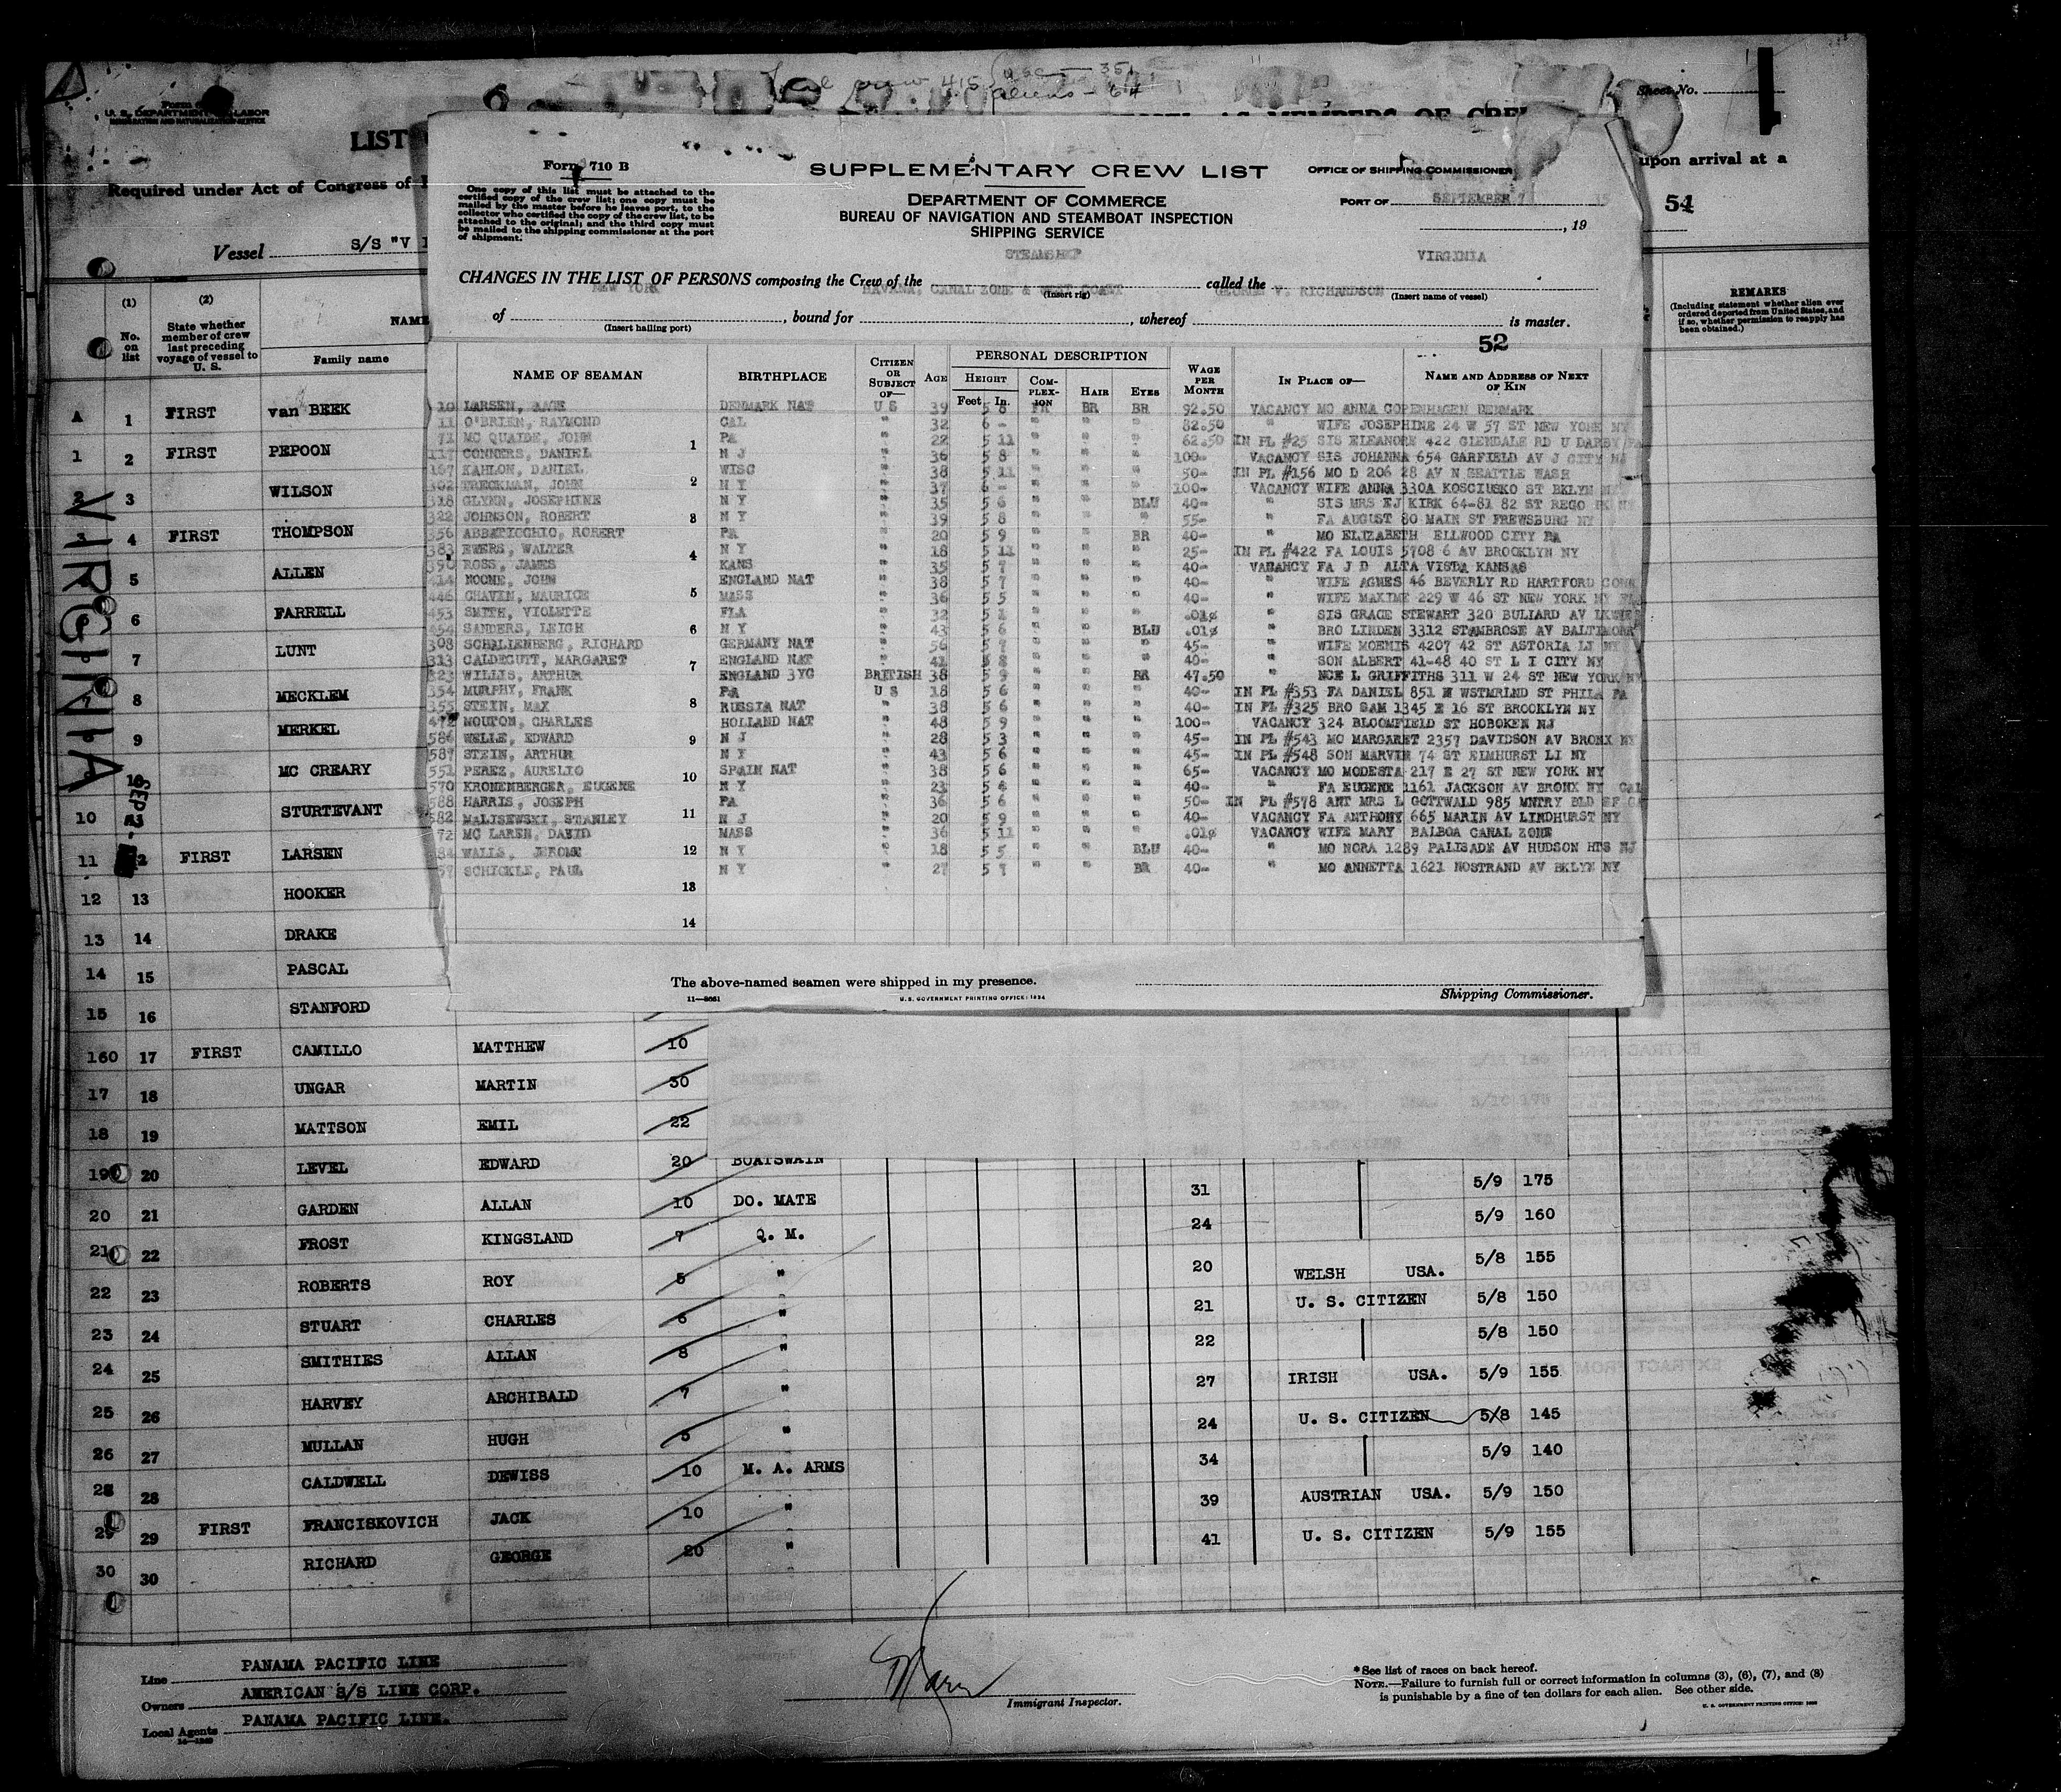 Total crew 415
aliens - 64
Sheet No.
1
U. S. DEPARTMENT OF LABOR
IMMIGRATION AND NATURALIZATION SERVICE
LIST
AS MEMBERS OF CREW
upon arrival at a
Required under Act of Congress of
54
Vessel S/S "V I
Form 710 B
One copy of this list must be attached to the
certified copy of the crew list; one copy must be
mailed by the master before he leaves port, to the
collector who certified the copy of the crew list, to be
attached to the original; and the third copy must
be mailed to the shipping commissioner at the port
of shipment.
SUPPLEMENTARY CREW LIST
DEPARTMENT OF COMMERCE
BUREAU OF NAVIGATION AND STEAMBOAT INSPECTION
SHIPPING SERVICE
OFFICE OF SHIPPING COMMISSIONER
PORT OF SEPTEMBER 7
, 19
STEAMSHIP VIRGINIA
CHANGES IN THE LIST OF PERSONS composing the Crew of the called the
(Insert rig) (Insert name of vessel)
NEW YORK HAVANA, CANAL ZONE & WEST COAST GEORGE V. RICHARDSON
of , bound for , whereof is master.
(Insert hailing port)
52
NAME OF SEAMAN BIRTHPLACE CITIZEN OR SUBJECT OF— AGE PERSONAL DESCRIPTION WAGE PER MONTH IN PLACE OF— NAME AND ADDRESS OF NEXT OF KIN
HEIGHT COMPLEXION HAIR EYES
Feet In.
10 LARSEN, DENMARK NAT U S 39 5 8 FR BR BR 92.50 VACANCY MO ANNA COPENHAGEN DENMARK
11 O'BRIEN, RAYMOND CAL " 32 6 - " " " 82.50 " WIFE JOSEPHINE 24 W 57 ST NEW YORK NY
71 MC QUAIDE, JOHN PA " 22 5 11 " " " 62.50 IN PL #25 SIS ELEANORE 422 GLENDALE RD U DARBY PA
117 CONNERS, DANIEL N J " 36 5 8 " " " 100- VACANCY SIS JOHANNA 654 GARFIELD AV J CITY NJ
167 KAHLON, DANIEL WISC " 38 5 11 " " " 50- IN PL #156 MO D 206 28 AV N SEATTLE WASH
302 TRECKMAN, JOHN N Y " 37 6 - " " " 100- VACANCY WIFE ANNA 330A KOSCIUSKO ST BKLYN NY
318 GLYNN, JOSEPHINE N Y " 35 5 6 " " BLU 40- " SIS MRS EJ KIRK 64-81 82 ST REGO PK NY
322 JOHNSON, ROBERT N Y " 39 5 8 " " " 55- " FA AUGUST 80 MAIN ST FREWSBURG NY
356 ABBATICCHIO, ROBERT PA " 20 5 9 " " BR 40- " MO ELIZABETH ELLWOOD CITY PA
383 EWERS, WALTER N Y " 18 5 11 " " " 25- IN PL #422 FA LOUIS 5708 6 AV BROOKLYN NY
390 ROSS, JAMES KANS " 35 5 7 " " " 40- VACANCY FA J D ALTA VISTA KANSAS
414 NOONE, JOHN ENGLAND NAT " 38 5 7 " " " 40- " WIFE AGNES 46 BEVERLY RD HARTFORD CONN
446 CHAVIN, MAURICE MASS " 36 5 5 " " " 40- " WIFE MAXIME 229 W 46 ST NEW YORK NY
453 SMITH, VIOLETTE FLA " 32 5 1 " " " .01¢ " SIS GRACE STEWART 320 BULIARD AV
454 SANDERS, LEIGH N Y " 43 5 6 " " BLU .01¢ " BRO LINDEN 3312 STAMBROSE AV BALTIMORE
308 SCHALLENBERG, RICHARD GERMANY NAT " 56 5 7 " " " 45- " WIFE 4207 42 ST ASTORIA LI NY
313 CALDECUTT, MARGARET ENGLAND NAT " 41 5 8 " " " 40- " SON ALBERT 41-48 40 ST L I CITY NY
323 WILLIS, ARTHUR ENGLAND 3YG BRITISH 38 5 9 " " BR 47.50 " NCE L GRIFFITHS 311 W 24 ST NEW YORK NY
354 MURPHY, FRANK PA U S 18 5 6 " " " 40- IN PL #353 FA DANIEL 851 W WSTMRLND ST PHILA PA
355 STEIN, MAX RUSSIA NAT " 38 5 6 " " " 40- IN PL #325 BRO SAM 1345 E 16 ST BROOKLYN NY
472 MOUTON, CHARLES HOLLAND NAT " 48 5 9 " " " 100- VACANCY 324 BLOOMFIELD ST HOBOKEN NJ
586 WELLE, EDWARD N J " 28 5 3 " " " 45- IN PL #543 MO MARGARET 2357 DAVIDSON AV BRONX NY
587 STEIN, ARTHUR N Y " 43 5 6 " " " 45- IN PL #548 SON MARVIN 74 ST ELMHURST LI NY
551 PEREZ, AURELIO SPAIN NAT " 38 5 6 " " " 65- VACANCY MO MODESTA 217 E 27 ST NEW YORK NY
570 KRONENBERGER, EUGENE N Y " 23 5 4 " " " 40- " FA EUGENE 1161 JACKSON AV BRONX NY
588 HARRIS, JOSEPH PA " 36 5 6 " " " 50- IN PL #578 ANT MRS L GOTTWALD 985 MNTRY BLD SF CAL
582 MALISEWSKI, STANLEY N J " 20 5 9 " " " 40- VACANCY FA ANTHONY 665 MARIN AV LINDHURST NY
72 MC LAREN, DAVID MASS " 36 5 11 " " " .01¢ VACANCY WIFE MARY BALBOA CANAL ZONE
84 WALLS, JEROME N Y " 18 5 5 " " BLU 40- " MO NORA 1289 PALISADE AV HUDSON HTS NJ
57 SCHICKLE, PAUL N Y " 27 5 7 " " BR 40- " MO ANNETTA 1621 NOSTRAND AV BKLYN NY
1
2
3
4
5
6
7
8
9
10
11
12
13
14
The above-named seamen were shipped in my presence.
11—8661 U.S. GOVERNMENT PRINTING OFFICE: 1934 Shipping Commissioner.
(1) (2)
No. on list State whether member of crew last preceding voyage of vessel to U. S. NAME
Family name
REMARKS
(Including statement whether alien ever ordered deported from United States, and if so, whether permission to reapply has been obtained.)
VIRGINIA
SEP
A 1 FIRST van BEEK
1 2 FIRST PEPOON
2 3 WILSON
3 4 FIRST THOMPSON
5 ALLEN
6 FARRELL
7 LUNT
7 8 MECKLEM
9 MERKEL
10 MC CREARY
10 STURTEVANT
11 12 FIRST LARSEN
12 13 HOOKER
13 14 DRAKE
14 15 PASCAL
15 16 STANFORD
160 17 FIRST CAMILLO MATTHEW 10
17 18 UNGAR MARTIN 30
18 19 MATTSON EMIL 22
19 20 LEVEL EDWARD 20 BOATSWAIN 31 5/9 175
20 21 GARDEN ALLAN 10 DO. MATE 24 5/9 160
21 22 FROST KINGSLAND 7 Q. M. 20 WELSH USA. 5/8 155
22 23 ROBERTS ROY 5 " 21 U. S. CITIZEN 5/8 150
23 24 STUART CHARLES 6 " 22 5/8 150
24 25 SMITHIES ALLAN 8 " 27 IRISH USA. 5/9 155
25 26 HARVEY ARCHIBALD 7 " 24 U. S. CITIZEN 5/8 145
26 27 MULLAN HUGH 5 " 34 5/9 140
28 28 CALDWELL DEWISS 10 M. A. ARMS 39 AUSTRIAN USA. 5/9 150
29 29 FIRST FRANCISKOVICH JACK 10 " 41 U. S. CITIZEN 5/9 155
30 30 RICHARD GEORGE 20 "
Line PANAMA PACIFIC LINE
Owners AMERICAN S/S LINE CORP.
Local Agents PANAMA PACIFIC LINE.
Immigrant Inspector.
*See list of races on back hereof.
NOTE.—Failure to furnish full or correct information in columns (3), (6), (7), and (8)
is punishable by a fine of ten dollars for each alien. See other side.